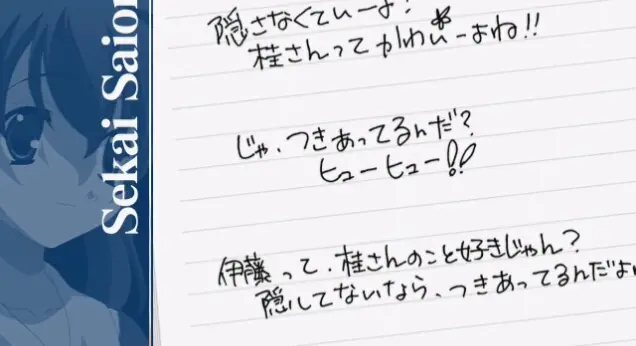 Sekai Saion
隠さなくていーよ!
桂さんってかわいーよね!!
じゃ、つきあってるんだ?
ヒューヒュー!!
伊藤って、桂さんのこと好きじゃん?
隠してないなら、つきあってるんだよ